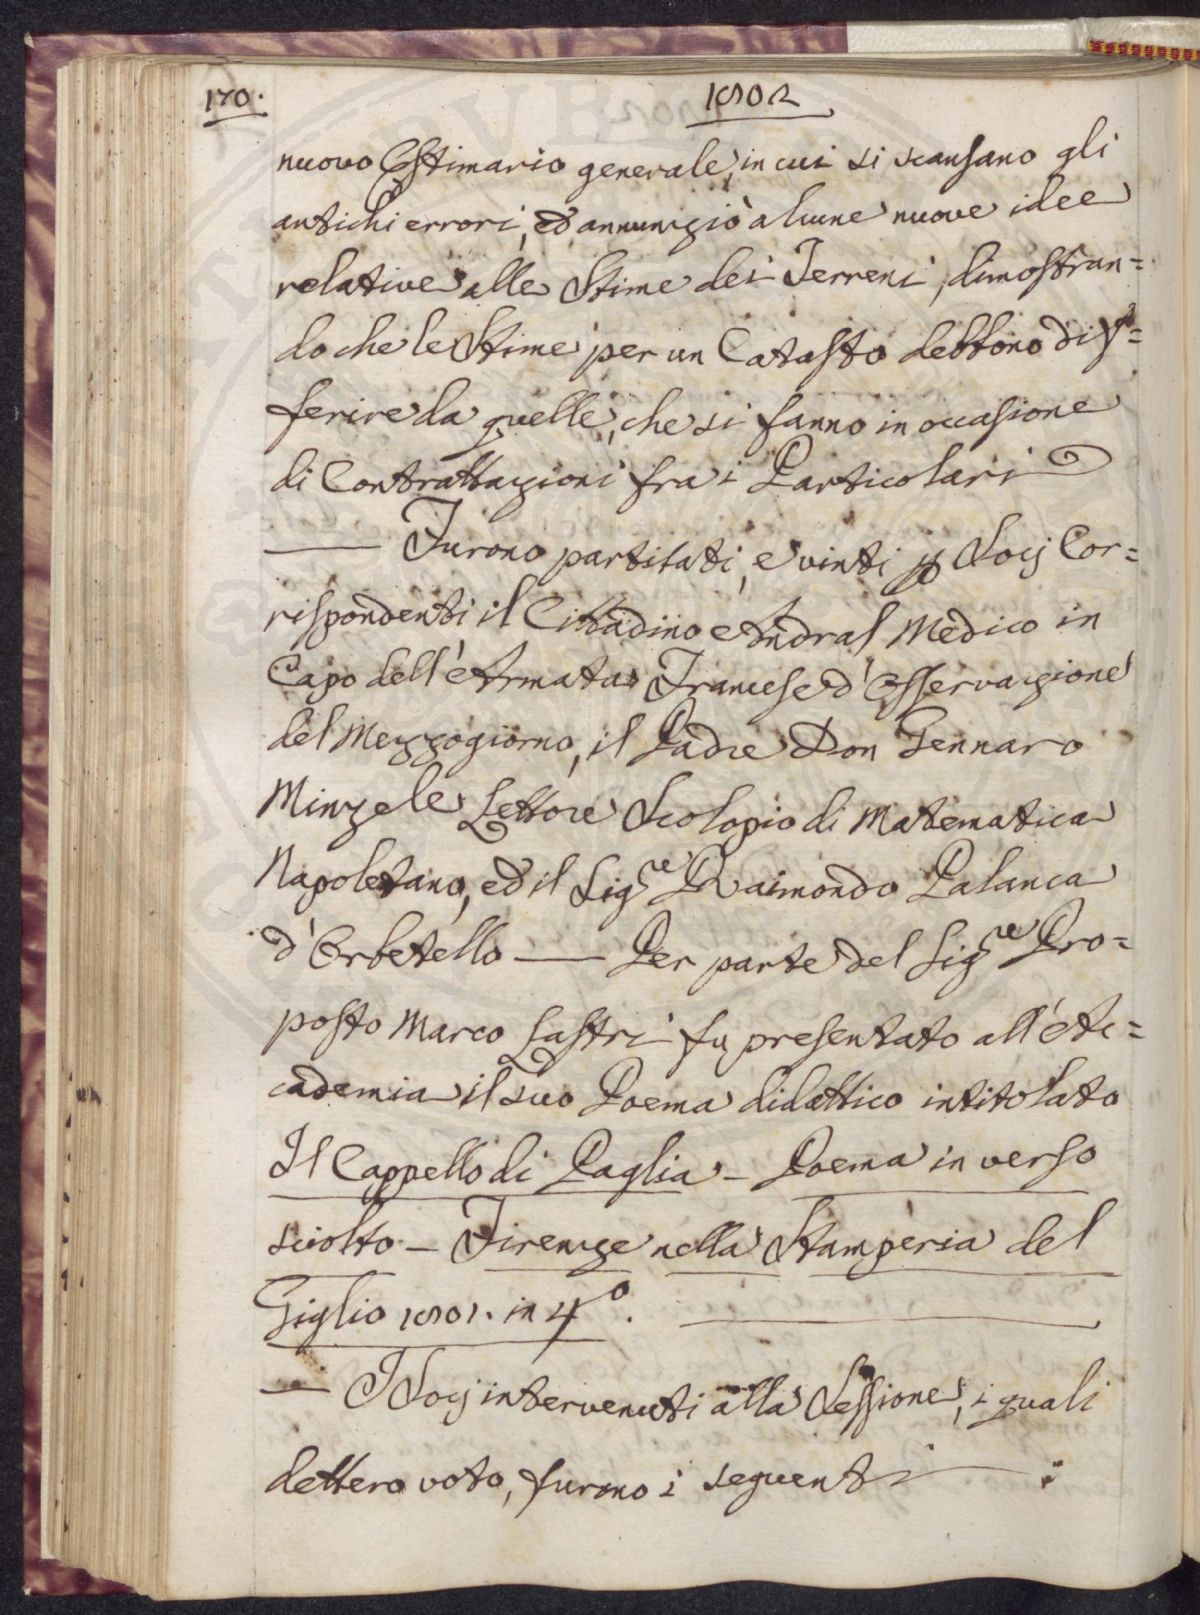 170. 1802
nuovo Estimario generale, in cui si scansano gli
antichi errori, ed annunziò alcune nuove idee
relative alle Stime dei Terreni, dimostran=
do che le Stime per un Catasto debbono dif=
ferire da quelle, che si fanno in occasione
di Contrattazioni fra i Particolari
— Furono partitati, e vinti p Socj Cor=
rispondenti il Cittadino Andral Medico in
Capo dell'Armata Francese d'Osservazione
del Mezzogiorno, il Padre Don Gennaro
Minzele Lettore Scolopio di Matematica
Napoletano, ed il Sig.re Raimondo Palanca
d'Orbetello — Per parte del Sig.re Pro=
posto Marco Lastri fu presentato all'Ac=
cademia il suo Poema didattico intitolato
Il Cappello di Paglia – Poema in verso
sciolto – Firenze nella Stamperia del
Giglio 1801. in 4º. —
— I Socj intervenuti alla Sessione, i quali
dettero voto, furono i seguenti :